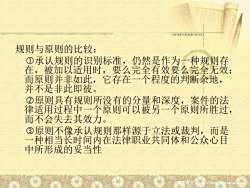 规则与原则的比较:
①承认规则的识别标准,仍然是作为一种规则存
在,被加以适用时,要么完全有效要么完全无效;
而原则并非如此,它存在一个程度的判断余地,
并不是非此即彼。
②原则具有规则所没有的分量和深度,案件的法
律适用过程中一个原则可以被另一个原则所胜过,
而不会失去其效力。
③原则不像承认规则那样源于立法或裁判,而是
一种相当长时间内在法律职业共同体和公众心目
中所形成的妥当性